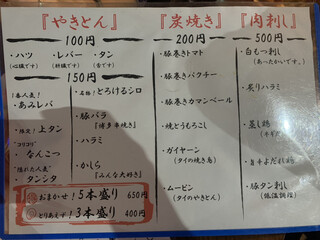 『やきとん』
100円
・ハツ ・レバー ・タン
(心臓です) (肝臓です) (舌です)
150円
(1番人気!)
・あみレバ
・限定!上タン
"コリコリ"
・なんこつ
"隠れた人気"
・タンシタ
・名物!とろけるシロ
・豚バラ
『博多串焼き』
・ハラミ
・かしら
『みんな大好き』
おまかせ!5本盛り 650円
とりあえず!3本盛り 400円
『炭焼き』
200円
・豚巻きトマト
・豚巻きパクチー
・豚巻きカマンベール
・焼とうもろこし
・ガイヤーン
(タイの焼き鳥)
・ムーピン
(タイのやきとん)
『肉刺し』
500円
・白もつ刺し
(あったかいです。)
・炙りハラミ
・蒸し鶏
・旨辛よだれ鶏
・豚タン刺し
(低温調理)